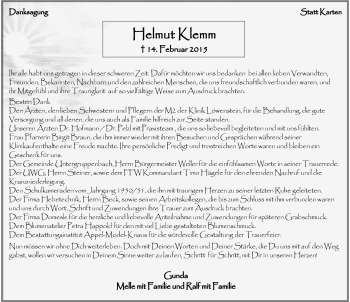 Danksagung
Statt Karten
Helmut Klemm
† 14. Februar 2015
Ihr alle habt uns getragen in dieser schweren Zeit. Dafür möchten wir uns bedanken bei allen lieben Verwandten,
Freunden, Bekannten, Nachbarn und den zahlreichen Menschen, die uns freundschaftlich verbunden waren, und
ihr Mitgefühl und ihre Traurigkeit auf so vielfältige Weise zum Ausdruck brachten.
Besten Dank
Den Ärzten, den lieben Schwestern und Pflegern der M2 der Klinik Löwenstein, für die Behandlung, die gute
Versorgung und all denen, die uns auch als Familie hilfreich zur Seite standen.
Unseren Ärzten Dr. Hofmann / Dr. Feld mit Praxisteam, die uns so liebevoll begleiteten und mit uns fühlten.
Frau Pfarrerin Birgit Braun, die ihm immer wieder mit ihren Besuchen und Gesprächen während seiner
Klinikaufenthalte eine Freude machte. Ihre persönliche Predigt und trostreichen Worte waren und bleiben ein
Geschenk für uns.
Der Gemeinde Untergruppenbach, Herrn Bürgermeister Weller für die einfühlsamen Worte in seiner Trauerrede.
Der UWG, Herrn Steiner, sowie dem FFW Kommandant Timo Hägele für den ehrenden Nachruf und die
Kranzniederlegung.
Den Schulkameraden vom Jahrgang 1950/51, die ihn mit traurigem Herzen zu seiner letzten Ruhe geleiteten.
Der Firma Hebetechnik, Herrn Beck, sowie seinen Arbeitskollegen, die bis zum Schluss mit ihm verbunden waren
und uns durch Wort, Schrift und Zuwendungen ihre Trauer zum Ausdruck brachten.
Der Firma Domesle für die herzliche und liebevolle Anteilnahme und Zuwendungen für späteren Grabschmuck.
Dem Blumenatelier Petra Happold für den mit viel Liebe gestalteten Blumenschmuck.
Dem Bestattungsinstitut Appel-Model-Knaus für die würdevolle Gestaltung der Trauerfeier.
Nun müssen wir ohne Dich weiterleben. Doch mit Deinen Worten und Deiner Stärke, die Du uns mit auf den Weg
gabst, wollen wir versuchen in Deinem Sinne weiter zu laufen, Schritt für Schritt, mit Dir in unseren Herzen!
Gunda
Melle mit Familie und Ralf mit Familie